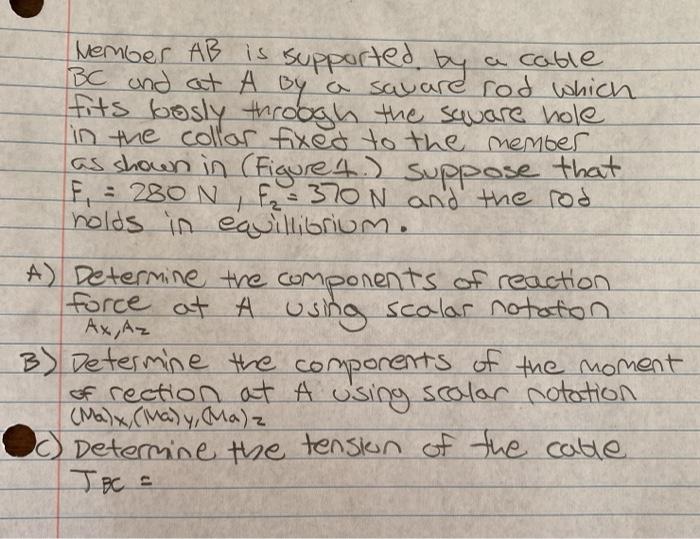 Member AB is supported by a cable
BC and at A by a sqvare rod which
fits loosly through the sqvare hole
in the collar fixed to the member
as shown in (Figure 1.) suppose that
F₁ = 280 N, F₂ = 370 N and the rod
holds in equillibrium.
A) Determine the components of reaction
force at A using scalar notation
Ax, Az
B) Determine the components of the moment
of rection at A using scalar notation
(Ma)x, (Ma)y, (Ma)z
C) Determine the tension of the cable
TBC =